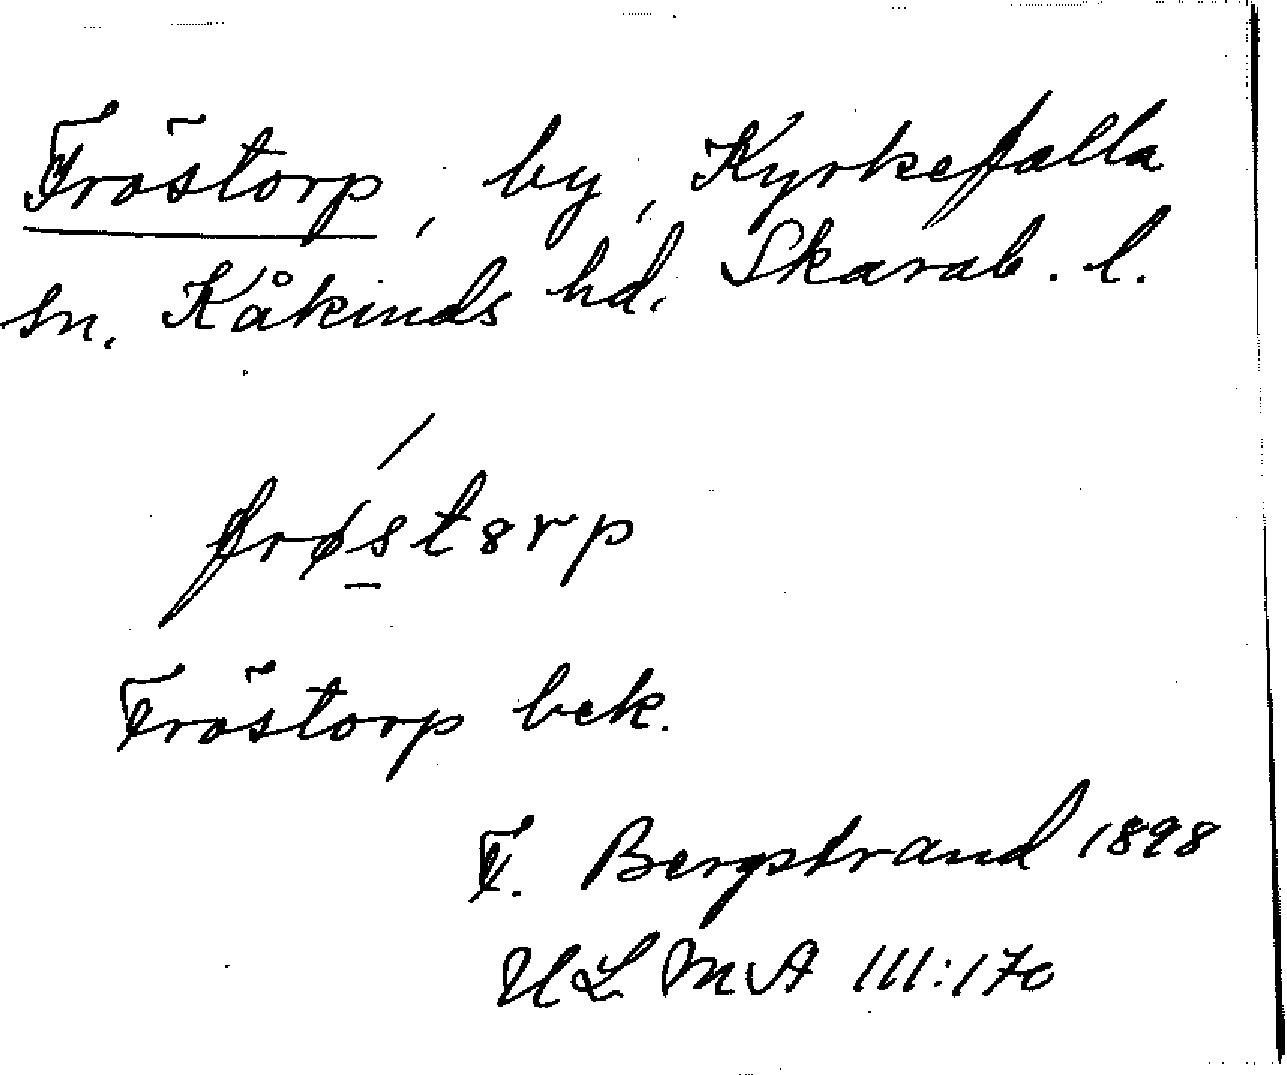 Fröstorp, by, Kyrkefalla
sn. Kåkinds hd. Skarab. l.
frøstorp
Fröstorp bek.
F. Bergstrand 1898
ULMA 111:170